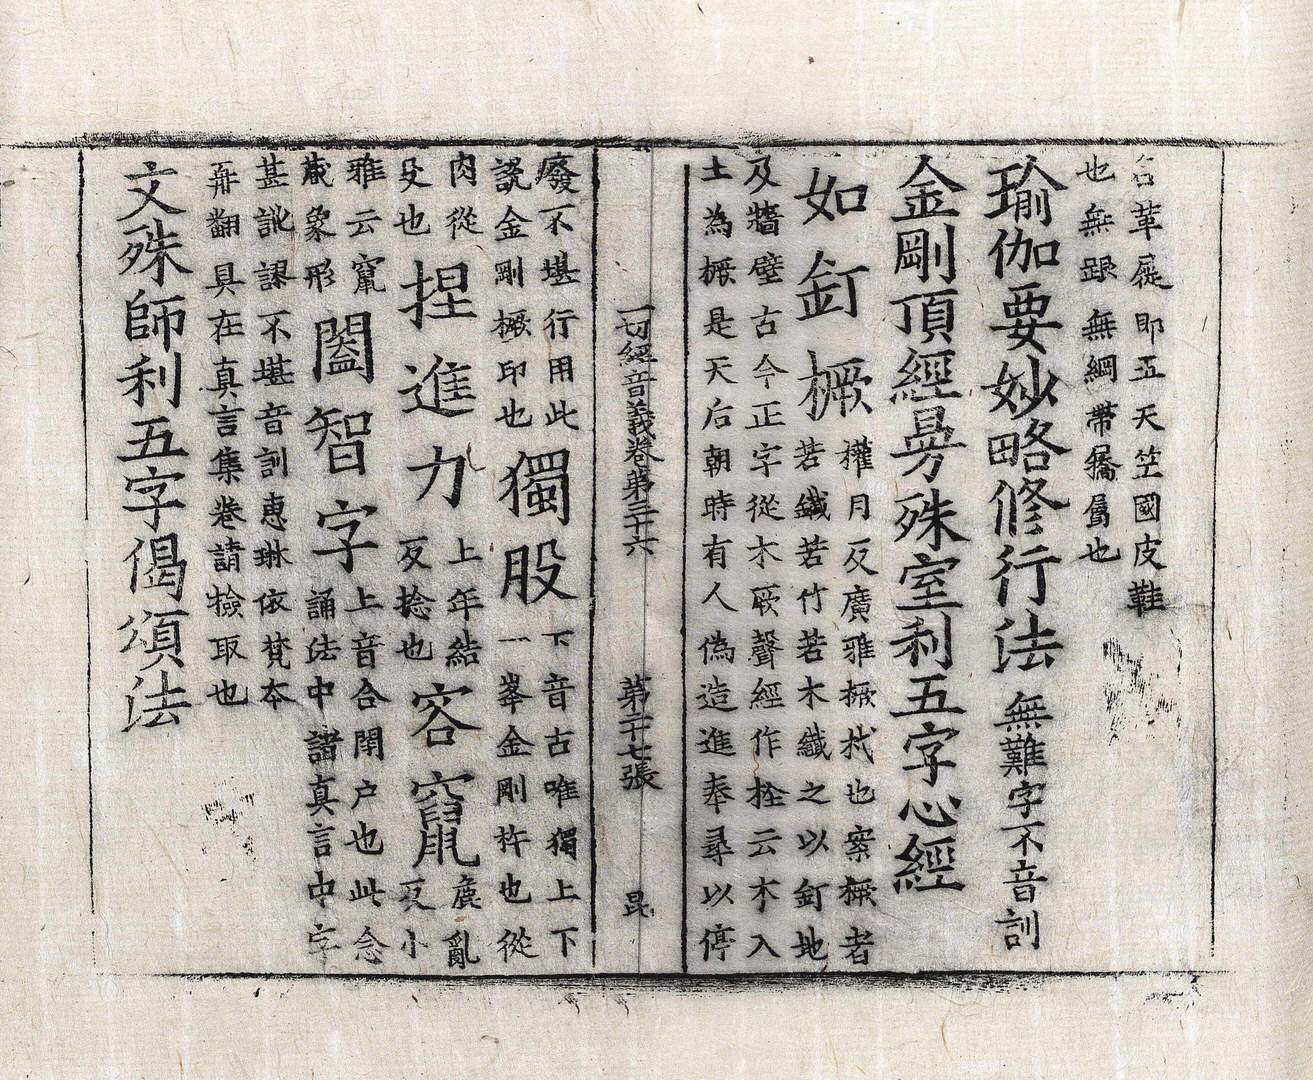 名革屣即五天竺國皮鞋
也無跟無綱帶屩屬也
瑜伽要妙略修行法無難字不音訓
金剛頂經曼殊室利五字心經
如釘橛
權月反廣雅橛杙也案橛者
若鐵若竹若木纖之以釘地
及牆壁古今正字從木厥聲經作栓云木入
土為橛是天后朝時有人偽造進奉尋以停
一切經音義卷第三十六 第二十七張 昆
廢不堪行用此
說金剛橛印也
獨股
下音古唯獨上下
一峯金剛杵也從
肉從
殳也
捏進力
上年結
反捻也
容竄
麁亂
反小
雅云竄
蔵象形
闔智字
上音合閇户也此念
誦法中諸真言中字
甚訛謬不堪音訓惠琳依梵本
再翻具在真言集卷請撿取也
文殊師利五字偈頌法